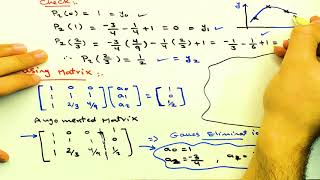 Check:-
P₂(0) = 1 = y₀
P₂(1) = -3/4 - 1/4 + 1 = 0 = y₁ ✓
P₂(2/3) = -3/4 (4/9) - 1/4 (2/3) + 1 = -1/3 - 1/6 + 1 =
∴ P₂(2/3) = 1/2 ✓ = y₂
y
Using Matrix
[1 0 0; 1 1 1; 1 2/3 4/9] [a₀; a₁; a₂] = [1; 0; 1/2]
Augmented Matrix
[1 0 0 1; 1 1 1 0; 1 2/3 4/9 1/2]
⇒ Gauss Elimination
a₀ = 1